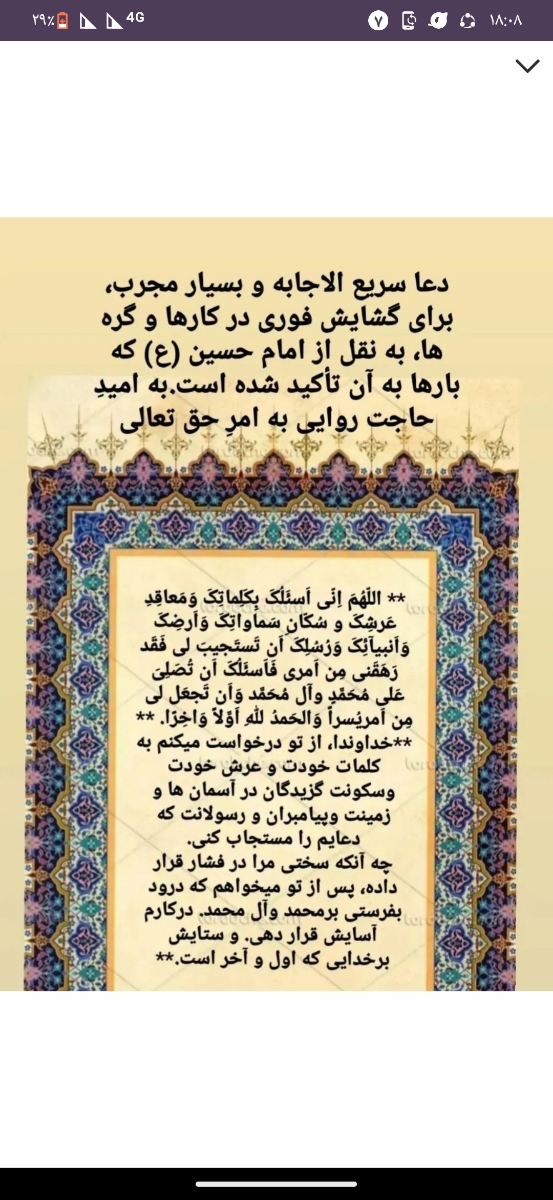 ۲۹٪ 4G ۷ ۱۸:۰۸
دعا سریع الاجابه و بسیار مجرب،
برای گشایش فوری در کارها و گره
ها، به نقل از امام حسین (ع) که
بارها به آن تأکید شده است.به امیدِ
حاجت روایی به امرِ حق تعالی
** اللّهُمَ اِنّی اَسئَلُکَ بِکَلِماتِکَ وَمَعاقِدِ
عَرشِکَ و سُکّانِ سَماواتِکَ وَاَرضِکَ
وَاَنبیآئِکَ وَرُسُلِکَ اَن تَستَجیبَ لی فَقَد
رَهَقَنی مِن اَمری فَاَسئَلُکَ اَن تُصَلِیَ
عَلی مُحَمَّدٍ وآلِ مُحَمَّد وَاَن تَجعَل لی
مِن اَمریُسراً وَالحَمدُ للهِ اَوّلاً وَاخِرًا. **
**خداوندا، از تو درخواست میکنم به
کلمات خودت و عرش خودت
وسکونت گزیدگان در آسمان ها و
زمینت وپیامبران و رسولانت که
دعایم را مستجاب کنی.
چه آنکه سختی مرا در فشار قرار
داده، پس از تو میخواهم که درود
بفرستی برمحمد وآل محمد. درکارم
آسایش قرار دهی. و ستایش
برخدایی که اول و آخر است.**